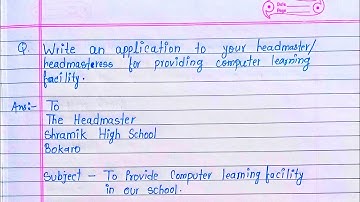 Date
Page
Q. Write an application to your headmaster/
headmasteress for providing computer learning
facility.
Ans:- To
The Headmaster
Shramik High School
Bokaro
Subject - To Provide Computer learning facility
in our school.